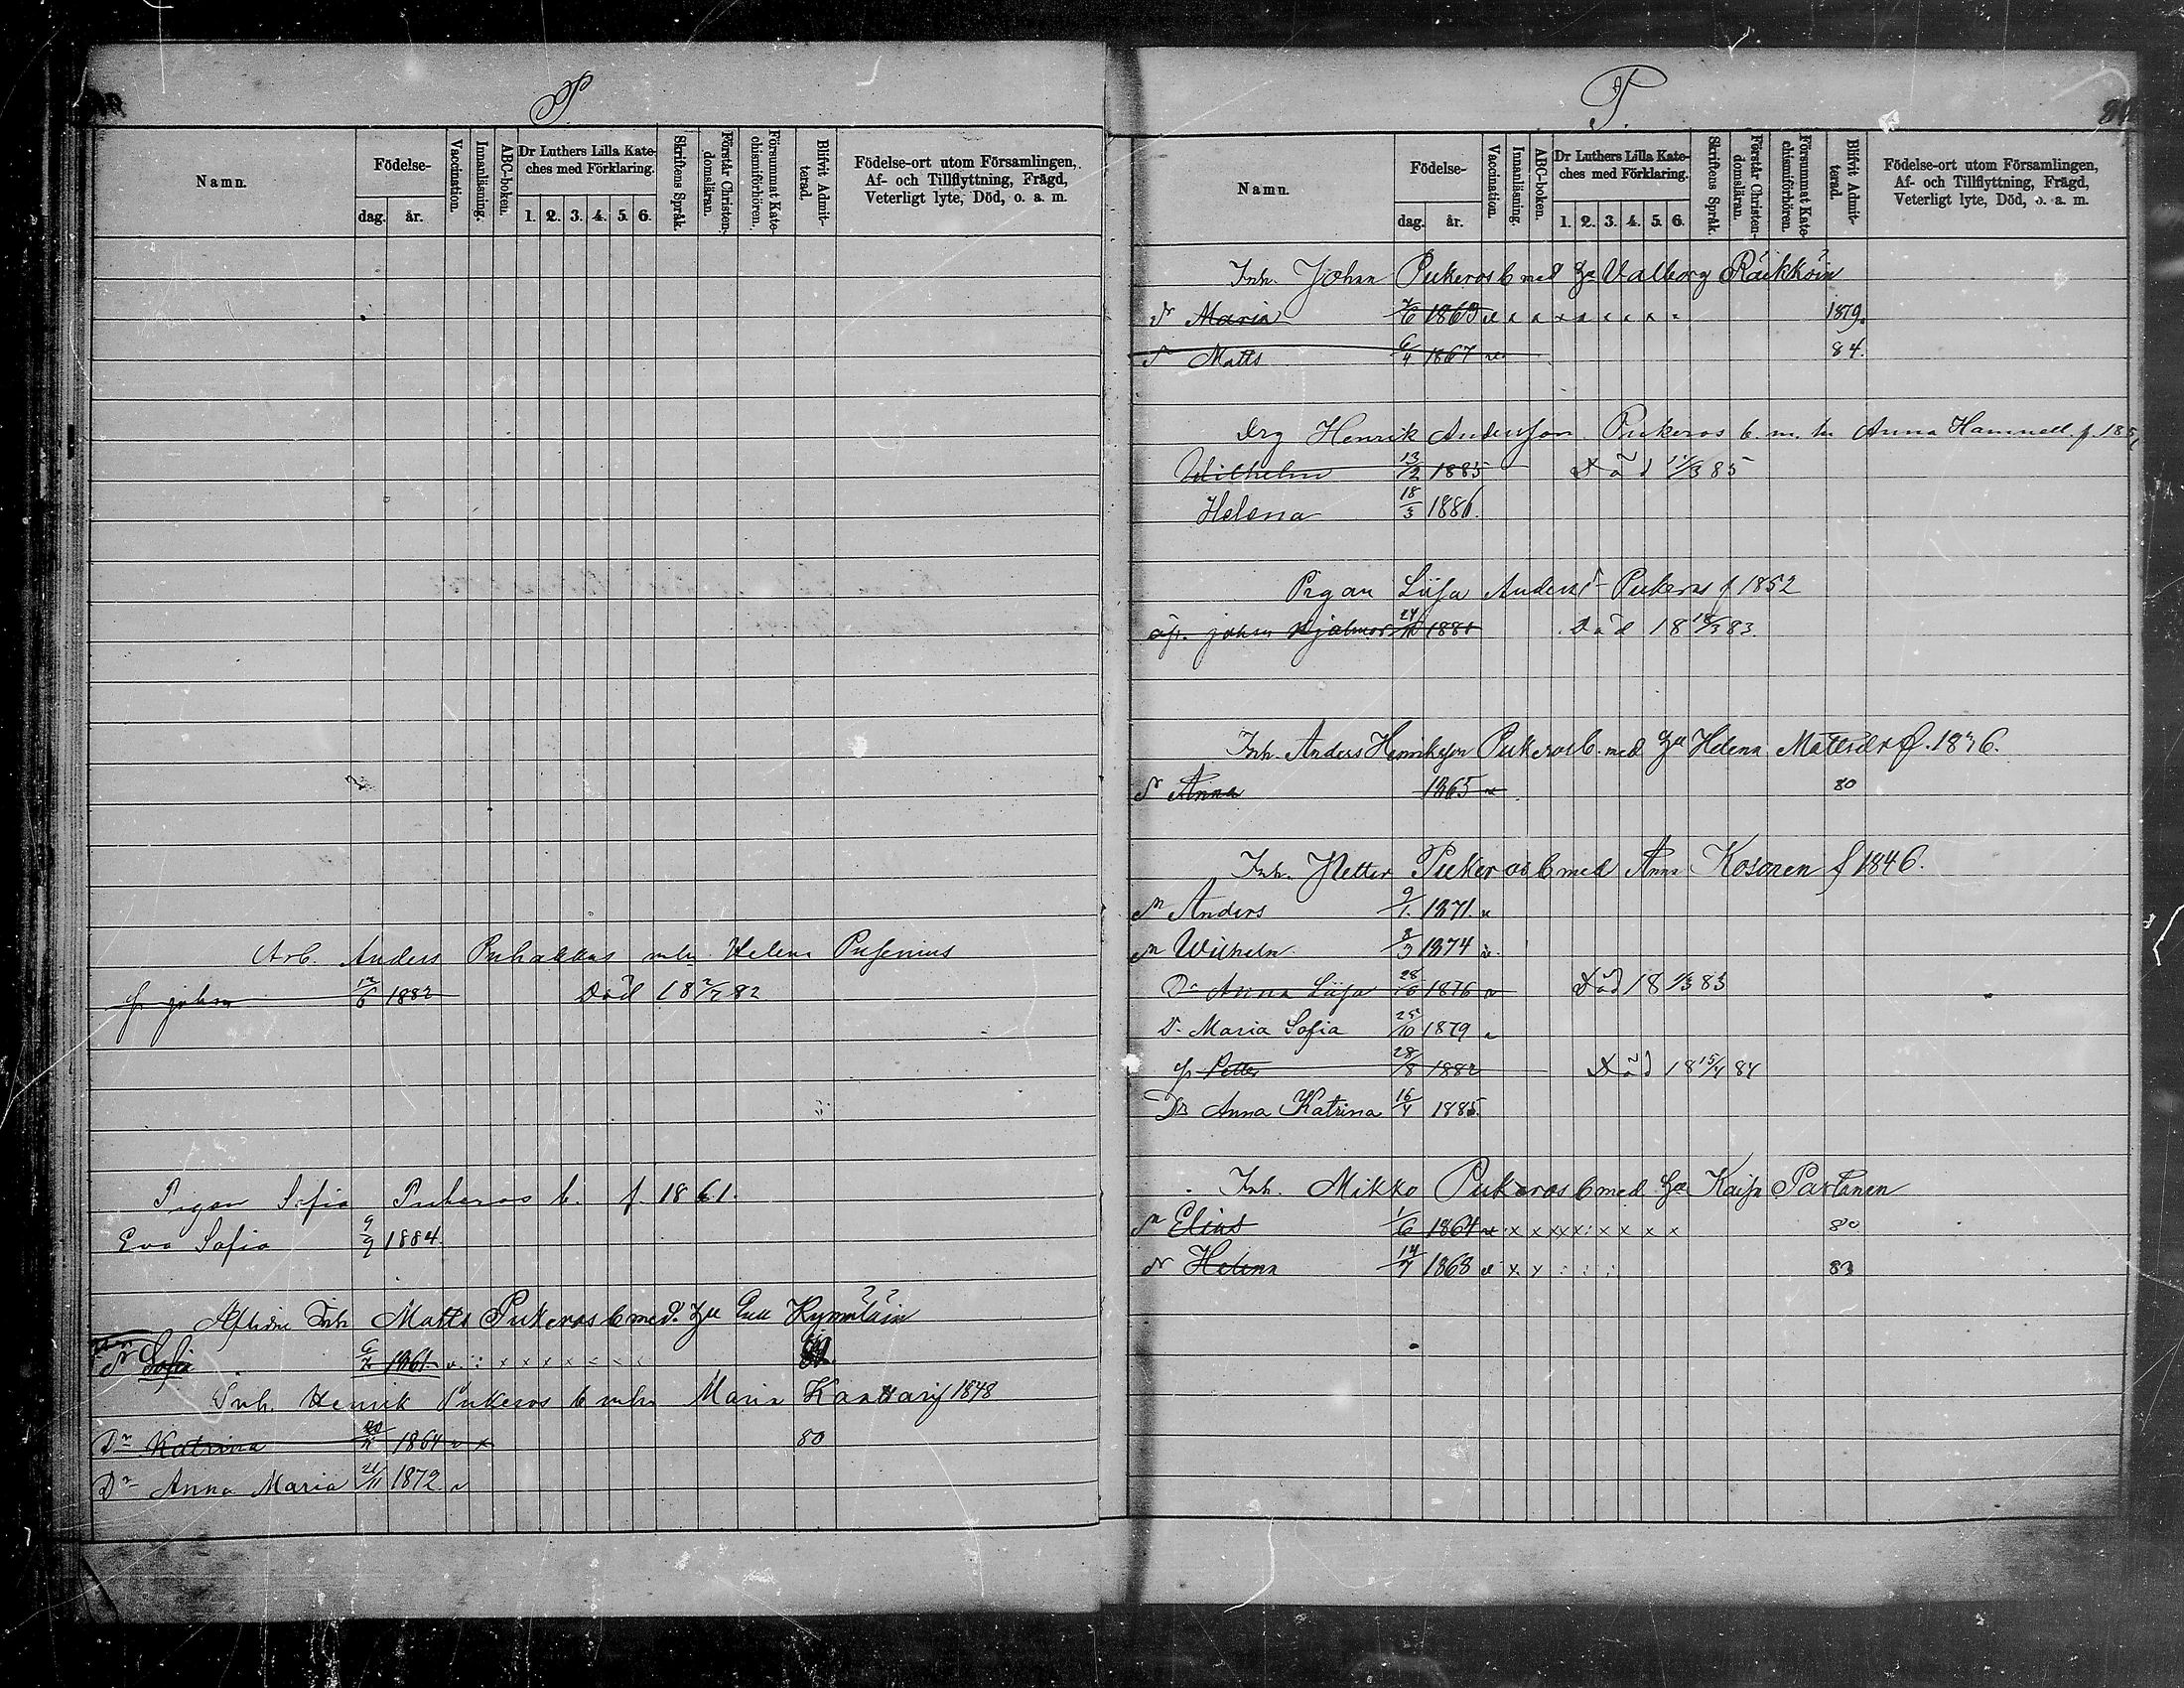 P.
Namn.
Födelse-
dag.
år.
Vaccination.
Innanläsning.
ABC-boken.
Dr Luthers Lilla Kate-
ches med Förklaring.
1. 2. 3. 4. 5. 6.
Skriftens Språk.
Förstår Christen-
domsläran.
Försummat Kate-
chismiförhören.
Blifvit Admit-
terad.
Födelse-ort utom Församlingen,
Af- och Tillflyttning, Frägd,
Veterligt lyte, Död, o. a. m.
Arb. Anders Puhakkas m.h. Helena Pusenius
johan 12/6 1882 Död 18 2/7 82
Pigan Sofia Pukeros b. f. 1861.
Eva Sofia 9/9 1884
Aflidne Inh Matts Pukeros b med Hu Eva Kymäläin
Sofia 1861 v. : x x x x
Inh. Henrik Pukeros b mhu Maria f 1848
Dr Katrina 1864 v x 80
Dr Anna Maria 21/11 1872 v
P.
Namn.
Födelse-
dag.
år.
Vaccination.
Innanläsning.
ABC-boken.
Dr Luthers Lilla Kate-
ches med Förklaring.
1. 2. 3. 4. 5. 6.
Skriftens Språk.
Förstår Christen-
domsläran.
Försummat Kate-
chismiförhören.
Blifvit Admit-
terad.
Födelse-ort utom Församlingen,
Af- och Tillflyttning, Frägd,
Veterligt lyte, Död, o. a. m.
Inh. Johan Pukeros b med Hu Valborg Räikköin
dr Maria 1863 v x x x x x x x 1879.
Matts 6/4 1867 v 84.
Drg Henrik Andersson Pukeros b. m. hu Anna Hamnell f. 185
Wilhelm 13/2 1885 Död 11/3 85
Helena 18/3 1886.
Pigan Liisa Andersd Pukeros f 1852
äp. johan Hjalmar 1881 Död 18 18/3 83
Inh. Anders Henriksson Pukeros b. med Hu Helena Mattsdr f. 1836.
dr Anna 1865 v 80
Inh. Petter Pukeros b med Anna Kosonen f 1846.
Sn Anders 9/1. 1871. v
Sn Wilhelm 8/3 1874 v.
Dr Anna Liisa 1876 v Död 18 1/3 83
Dr Maria Sofia 25/10 1879 v
Petter 28/8 1882 Död 18 15/4 84
Dr Anna Katrina 16/4 1885
Inh. Mikko Pukeros b med Hu Kaisa Partanen
Sn Elias 1/6 1864 v x x x x x : x x x x 80
dr Helena 14/7 1868 v x x : : : 83